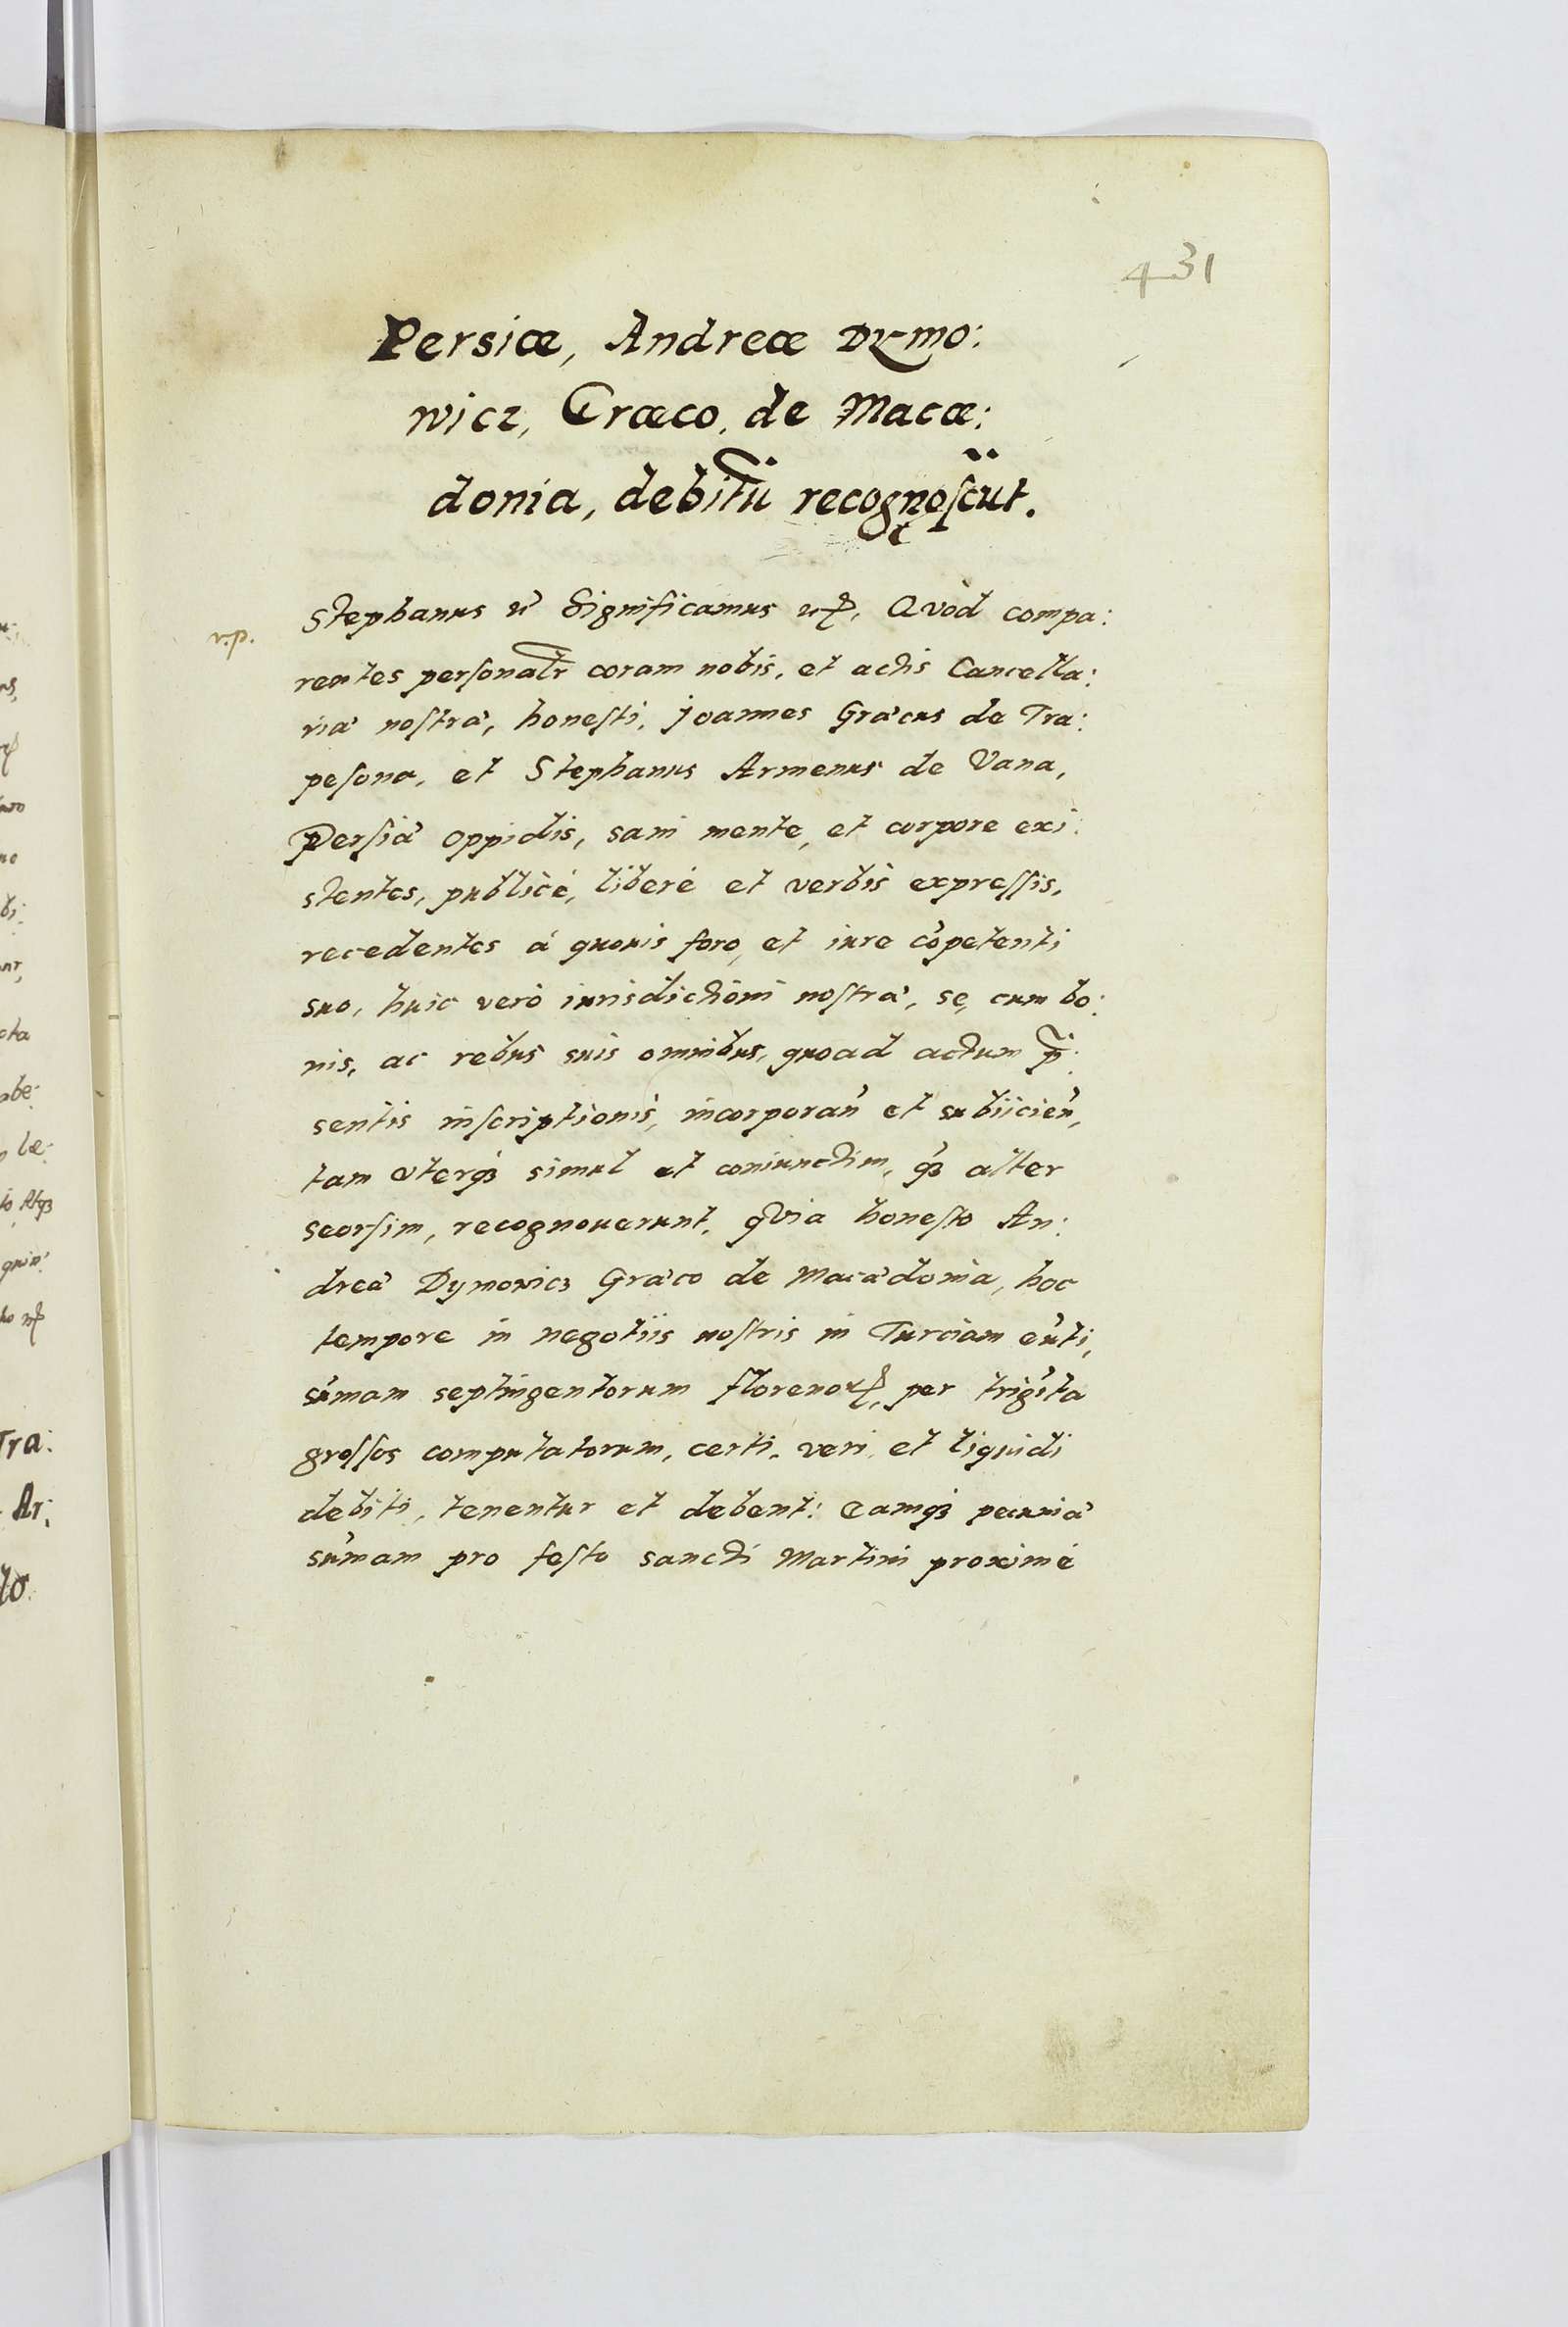 431
Persiæ, Andreæ Dymo:
wicz, Græco, de Macæ:
donia, debitū recognoſcūt.
v.p.
Stephanus Significamus Qvòd compa:
rentes perſonalr coram nobis, et actis Cancella:
riæ noſtræ, honeſti, Joannes Græcus de Tra:
peſona, et Stephanus Armenus de Vana,
Perſiæ oppidis, sani mente, et corpore exi:
stentes, publicè, liberè et verbis expreſſis,
recedentes à quouis foro, et iure cōpetenti
suo, huic verò iurisdictioni noſtræ, se, cum bo:
nis, ac rebus suis omnibus, quoad actum p̄:
sentis inſcriptionis, incorporan̄ et subiicien̄,
tam vterqȝ simul et coniunctim, qȝ alter
seorſim, recognouerunt, qvia honeſto An:
dreæ Dymowicz Græco de Macædonia, hoc
tempore in negotiis noſtris in Turciam eūti,
sūmam septingentorum florenoꝝ, per trigīta
groſſos computatorum, certi, veri, et liquidi
debiti, tenentur et debent: Eamqȝ pecuniæ
sūmam pro feſto sancti Martini proximè
Tra:
Ar: